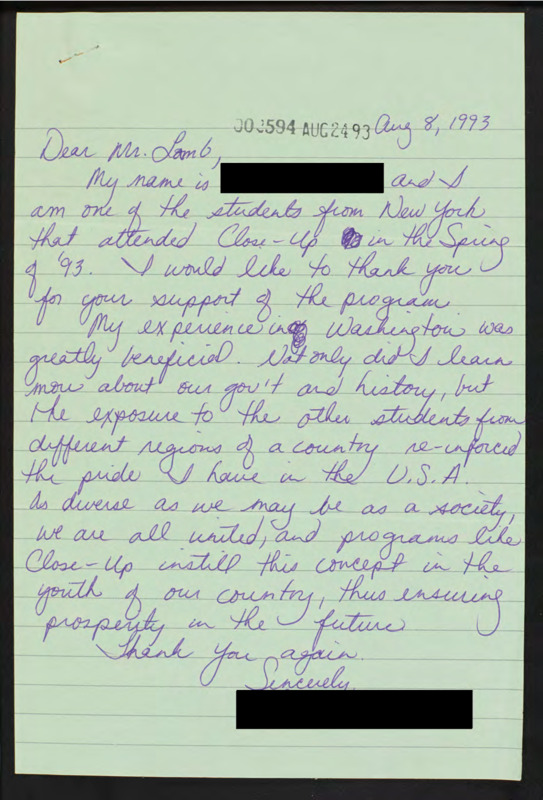 00J594 AUG 24 93 Aug 8, 1993
Dear Mr. Lamb,
My name is and I
am one of the students from New York
that attended Close-Up in the Spring
of '93. I would like to thank you
for your support of the program
My experience in Washington was
greatly beneficial. Not only did I learn
more about our gov't and history, but
the exposure to the other students from
different regions of a country re-inforced
the pride I have in the U.S.A.
As diverse as we may be as a society,
we are all united, and programs like
Close-Up instill this concept in the
youth of our country, thus ensuring
prosperity in the future
Thank you again.
Sincerely,